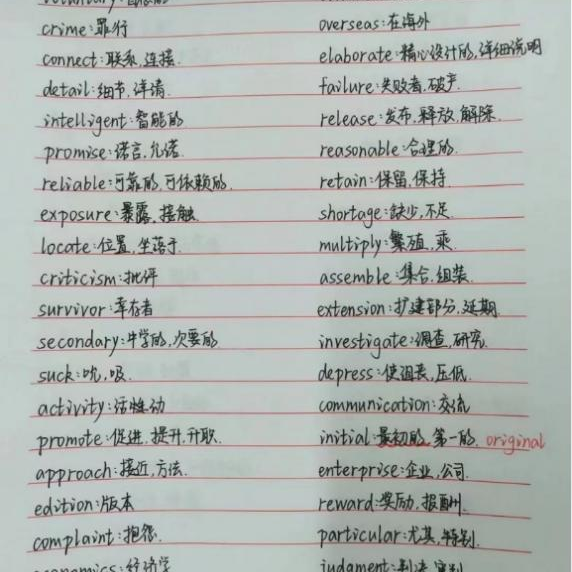 crime:罪行
connect:联系,连接.
detail:细节,详情.
intelligent:智能的
promise:诺言,允诺.
reliable:可靠的,可依赖的.
exposure:暴露,接触
locate:位置,坐落于.
criticism:批评
survivor:幸存者
secondary:中学的,次要的
suck:吮,吸.
activity:活性动
promote:促进,提升,升职.
approach:接近,方法.
edition:版本
complaint:抱怨.
economics:经济学
overseas:在海外
elaborate:精心设计的,详细说明
failure:失败者,破产.
release:发布,释放,解除.
reasonable:合理的.
retain:保留,保持.
shortage:缺少,不足.
multiply:繁殖,乘.
assemble:集合,组装.
extension:扩建部分,延期.
investigate:调查,研究.
depress:使沮丧,压低.
communication:交流
initial:最初的,第一的. original
enterprise:企业,公司.
reward:奖励,报酬.
particular:尤其,特别.
judgment:判决,审判